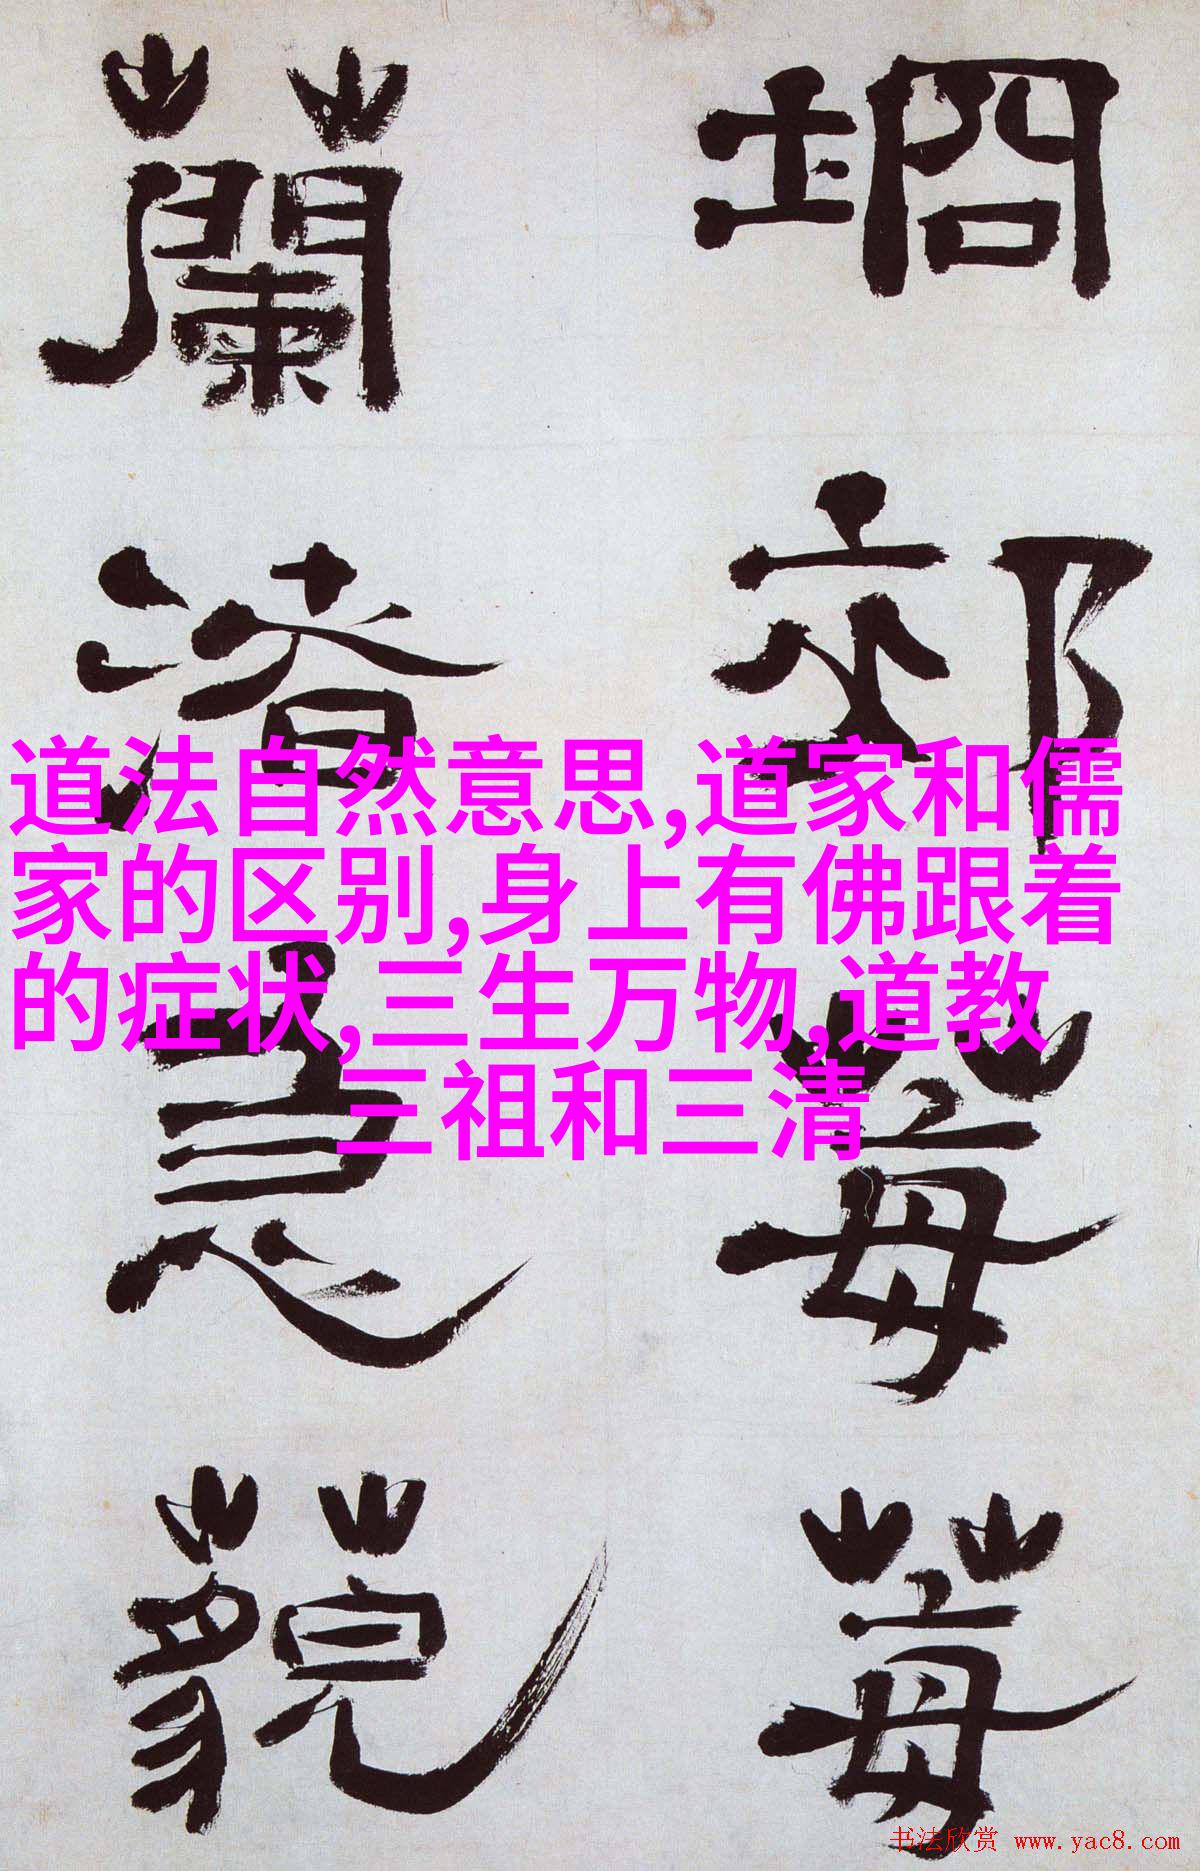 坰郊莓莓
蘭渚急藐
道法自然意思,道家和儒
家的区别,身上有佛跟着
的症状,三生万物,道教
三祖和三清
书法欣赏 www.yac8.com